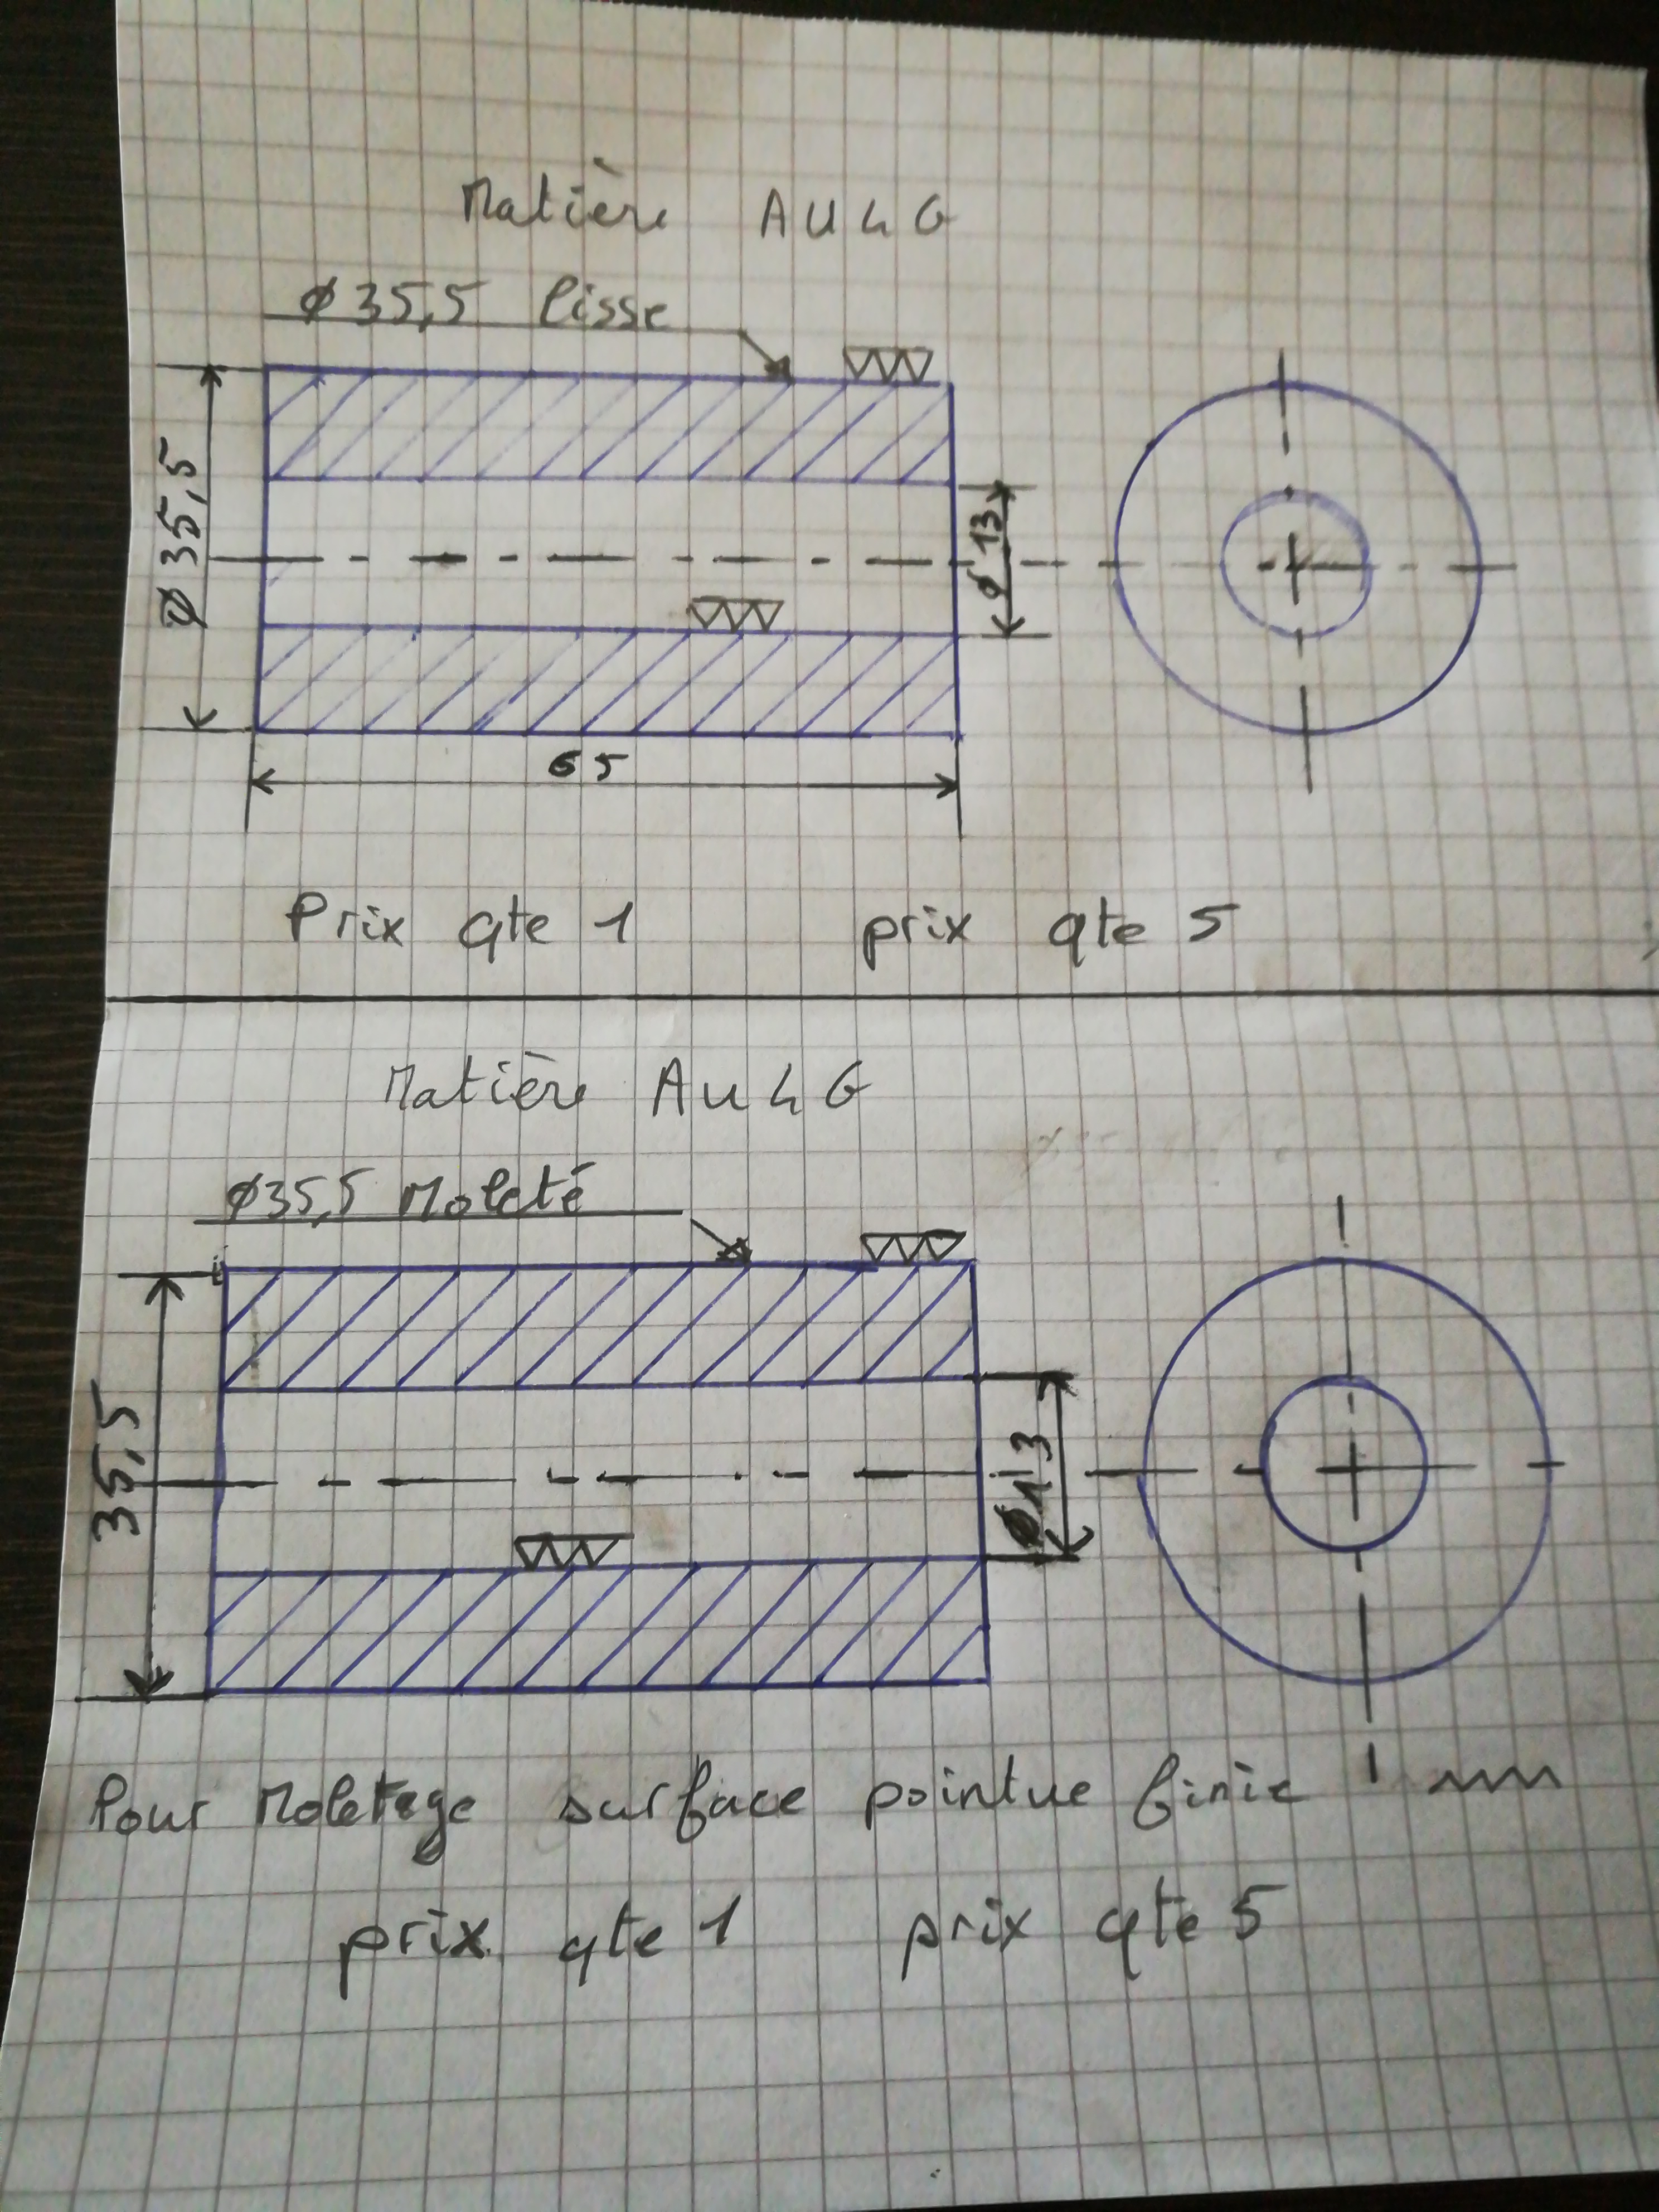 Matière AU4G
Ø35,5 lisse
Ø 35,5
Ø 13
65
Prix qte 1 prix qte 5
Matière AU4G
Ø35,5 Moleté
35,5
Ø13
Pour Moletage surface pointue finie
prix qte 1 prix qte 5